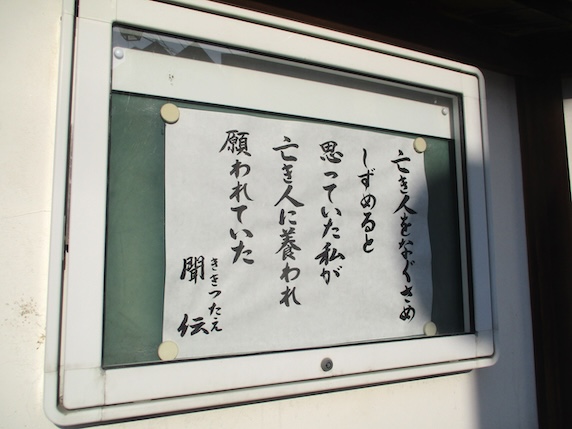 亡き人をなぐさめ
しずめると
思っていた私が
亡き人に養われ
願われていた
聞伝
ききつたえ